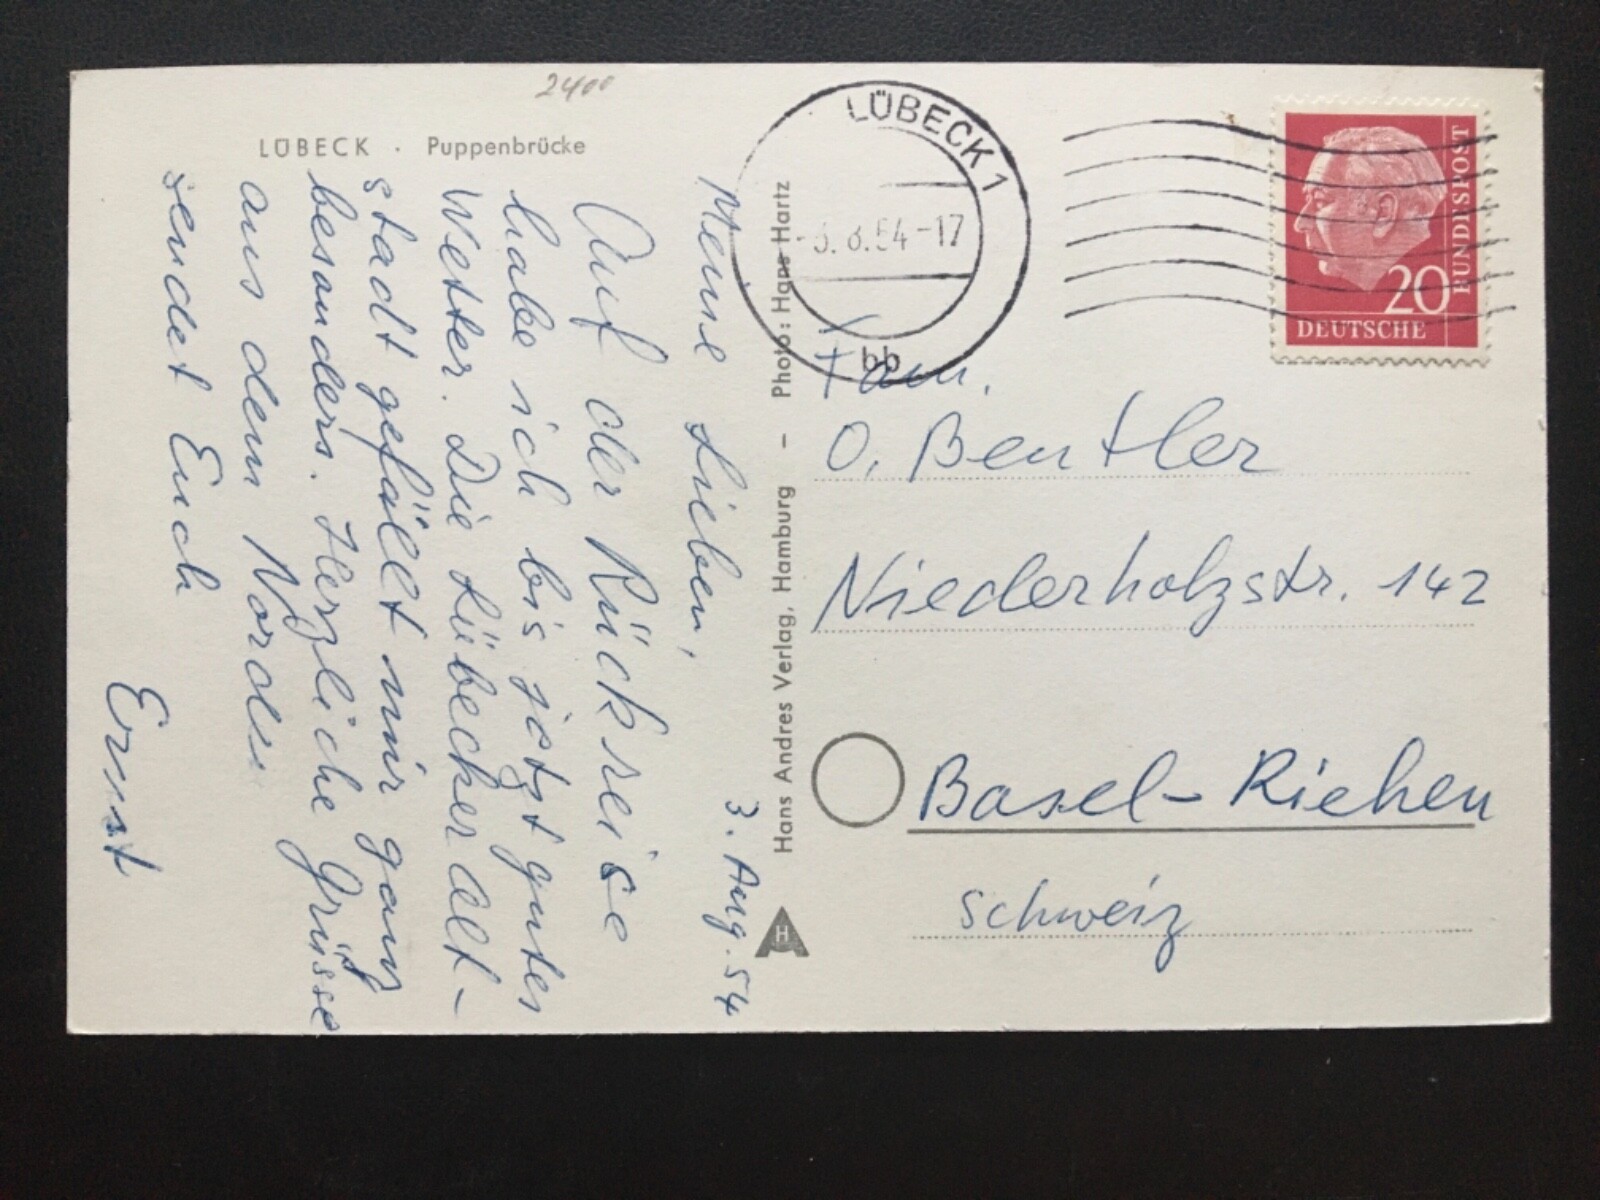 2400
LÜBECK · Puppenbrücke
3. Aug. 54
Meine Lieben,
Auf der Rückreise
habe ich bis jetzt gutes
Wetter. Die Lübecker Alt-
stadt gefällt mir ganz
besonders. Herzliche Grüsse
aus dem Norden
sendet Euch
Ernst
Hans Andres Verlag, Hamburg – Photo: Hans Hartz
H
LÜBECK 1
-3.8.54-17
bb
20
DEUTSCHE
BUNDESPOST
Fam.
O. Beutler
Niederholzstr. 142
Basel-Riehen
Schweiz